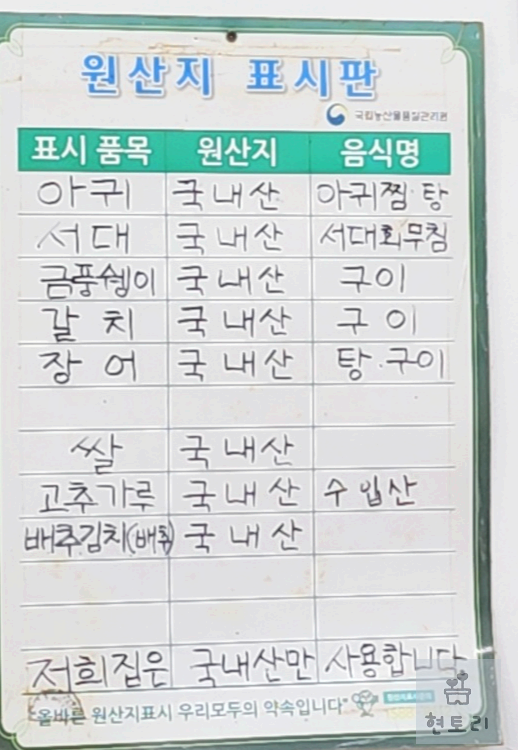 원산지 표시판
국립농산물품질관리원
표시 품목 원산지 음식명
아귀 국내산 아귀찜·탕
서대 국내산 서대회무침
금풍쉥이 국내산 구이
갈치 국내산 구이
장어 국내산 탕·구이
쌀 국내산
고추가루 국내산 수입산
배추김치(배추) 국내산
저희집은 국내산만 사용합니다
"올바른 원산지표시 우리모두의 약속입니다"
현토리